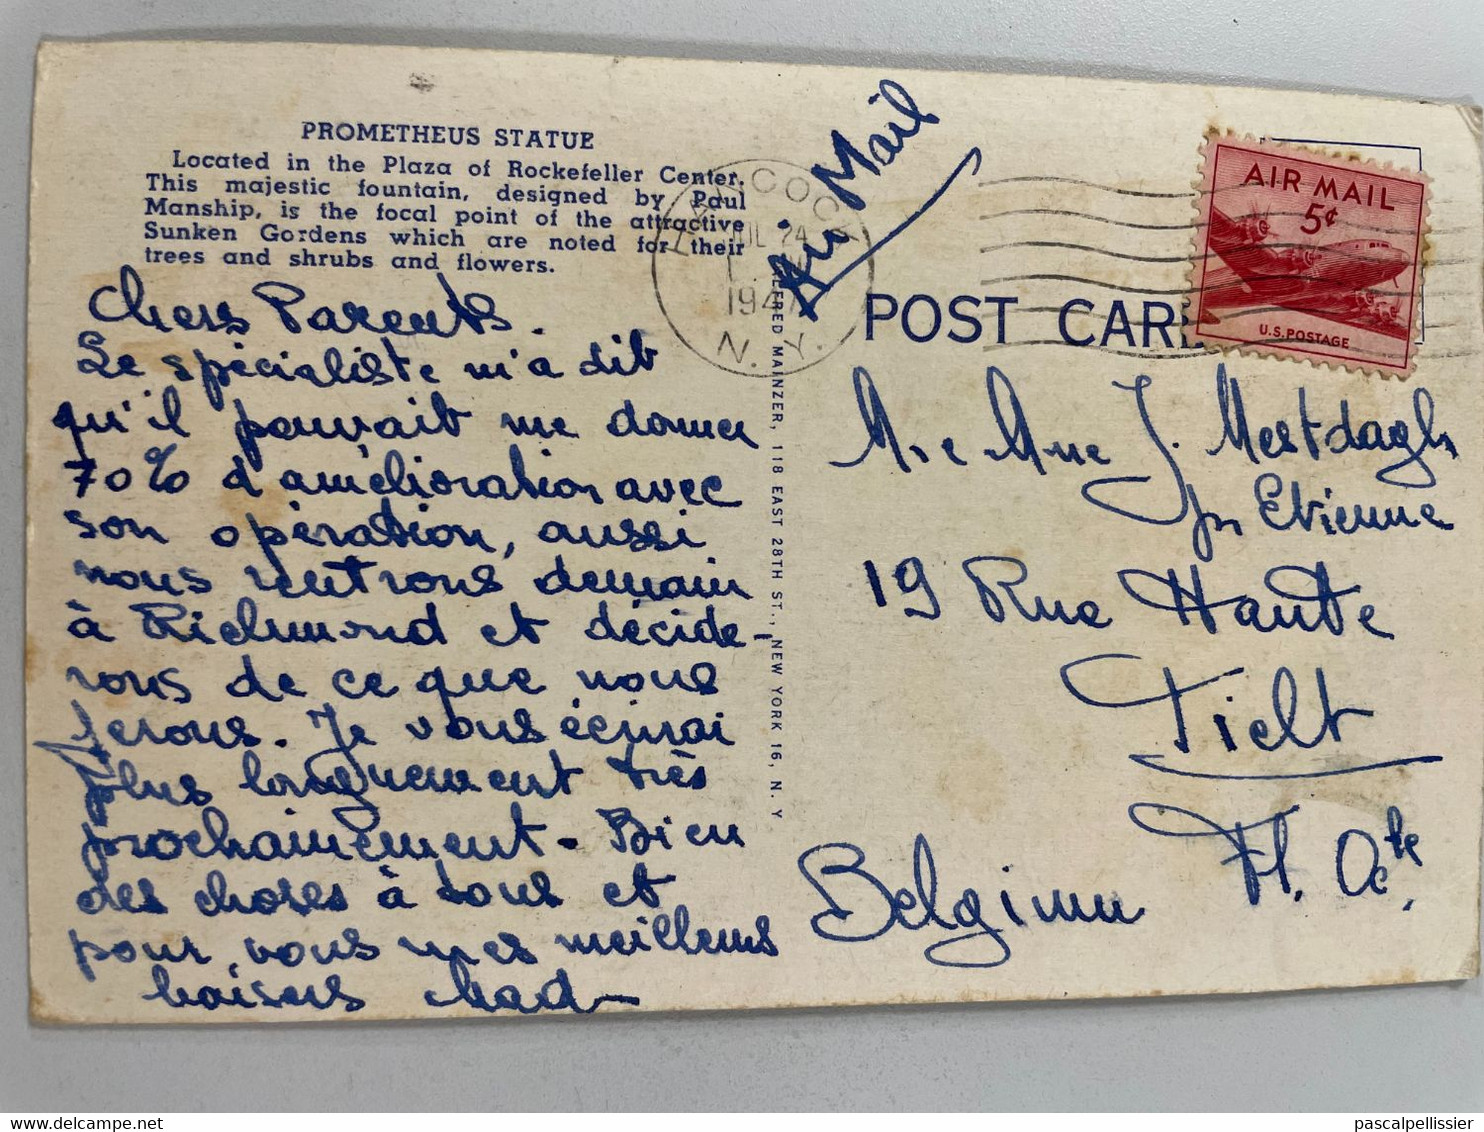 PROMETHEUS STATUE
Located in the Plaza of Rockefeller Center.
This majestic fountain, designed by Paul
Manship, is the focal point of the attractive
Sunken Gordens which are noted for their
trees and shrubs and flowers.
Chers Parents.
Le spécialiste m'a dit
qu'il pouvait me donner
70% d'amélioration avec
son opération, aussi
nous rentrons demain
à Richmond et décide-
rons de ce que nous
ferons. Je vous écrirai
plus longuement très
prochainement - Bien
des choses à tous et
pour vous mes meilleurs
baisers
HANCOCK
JUL 24
1947
N. Y.
Air Mail
ALFRED MAINZER, 118 EAST 28TH ST., NEW YORK 16, N. Y.
POST CARD
AIR MAIL
5¢
U.S. POSTAGE
Mr e Mme J. Mestdagh
Etienne
19 Rue Haute
Tielt
Fl. Occ.
Belgium
pascalpellissier